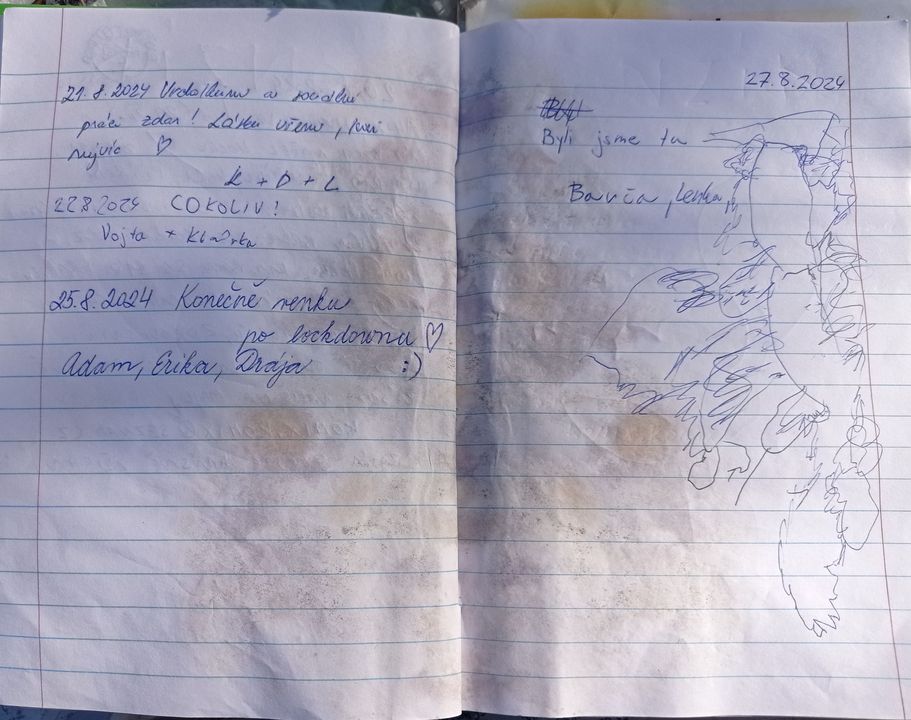 21.8.2024 a sociální
práci zdar! Lásku všem,
nejvíc ♡
K + D + L
22.8.2024 COKOLIV!
Vojta + Klárka
25.8.2024 Konečně venku
po lockdownu ♡
Adam, Erika, Drája :)
27.8.2024
Byli jsme tu
Barča, Lenka